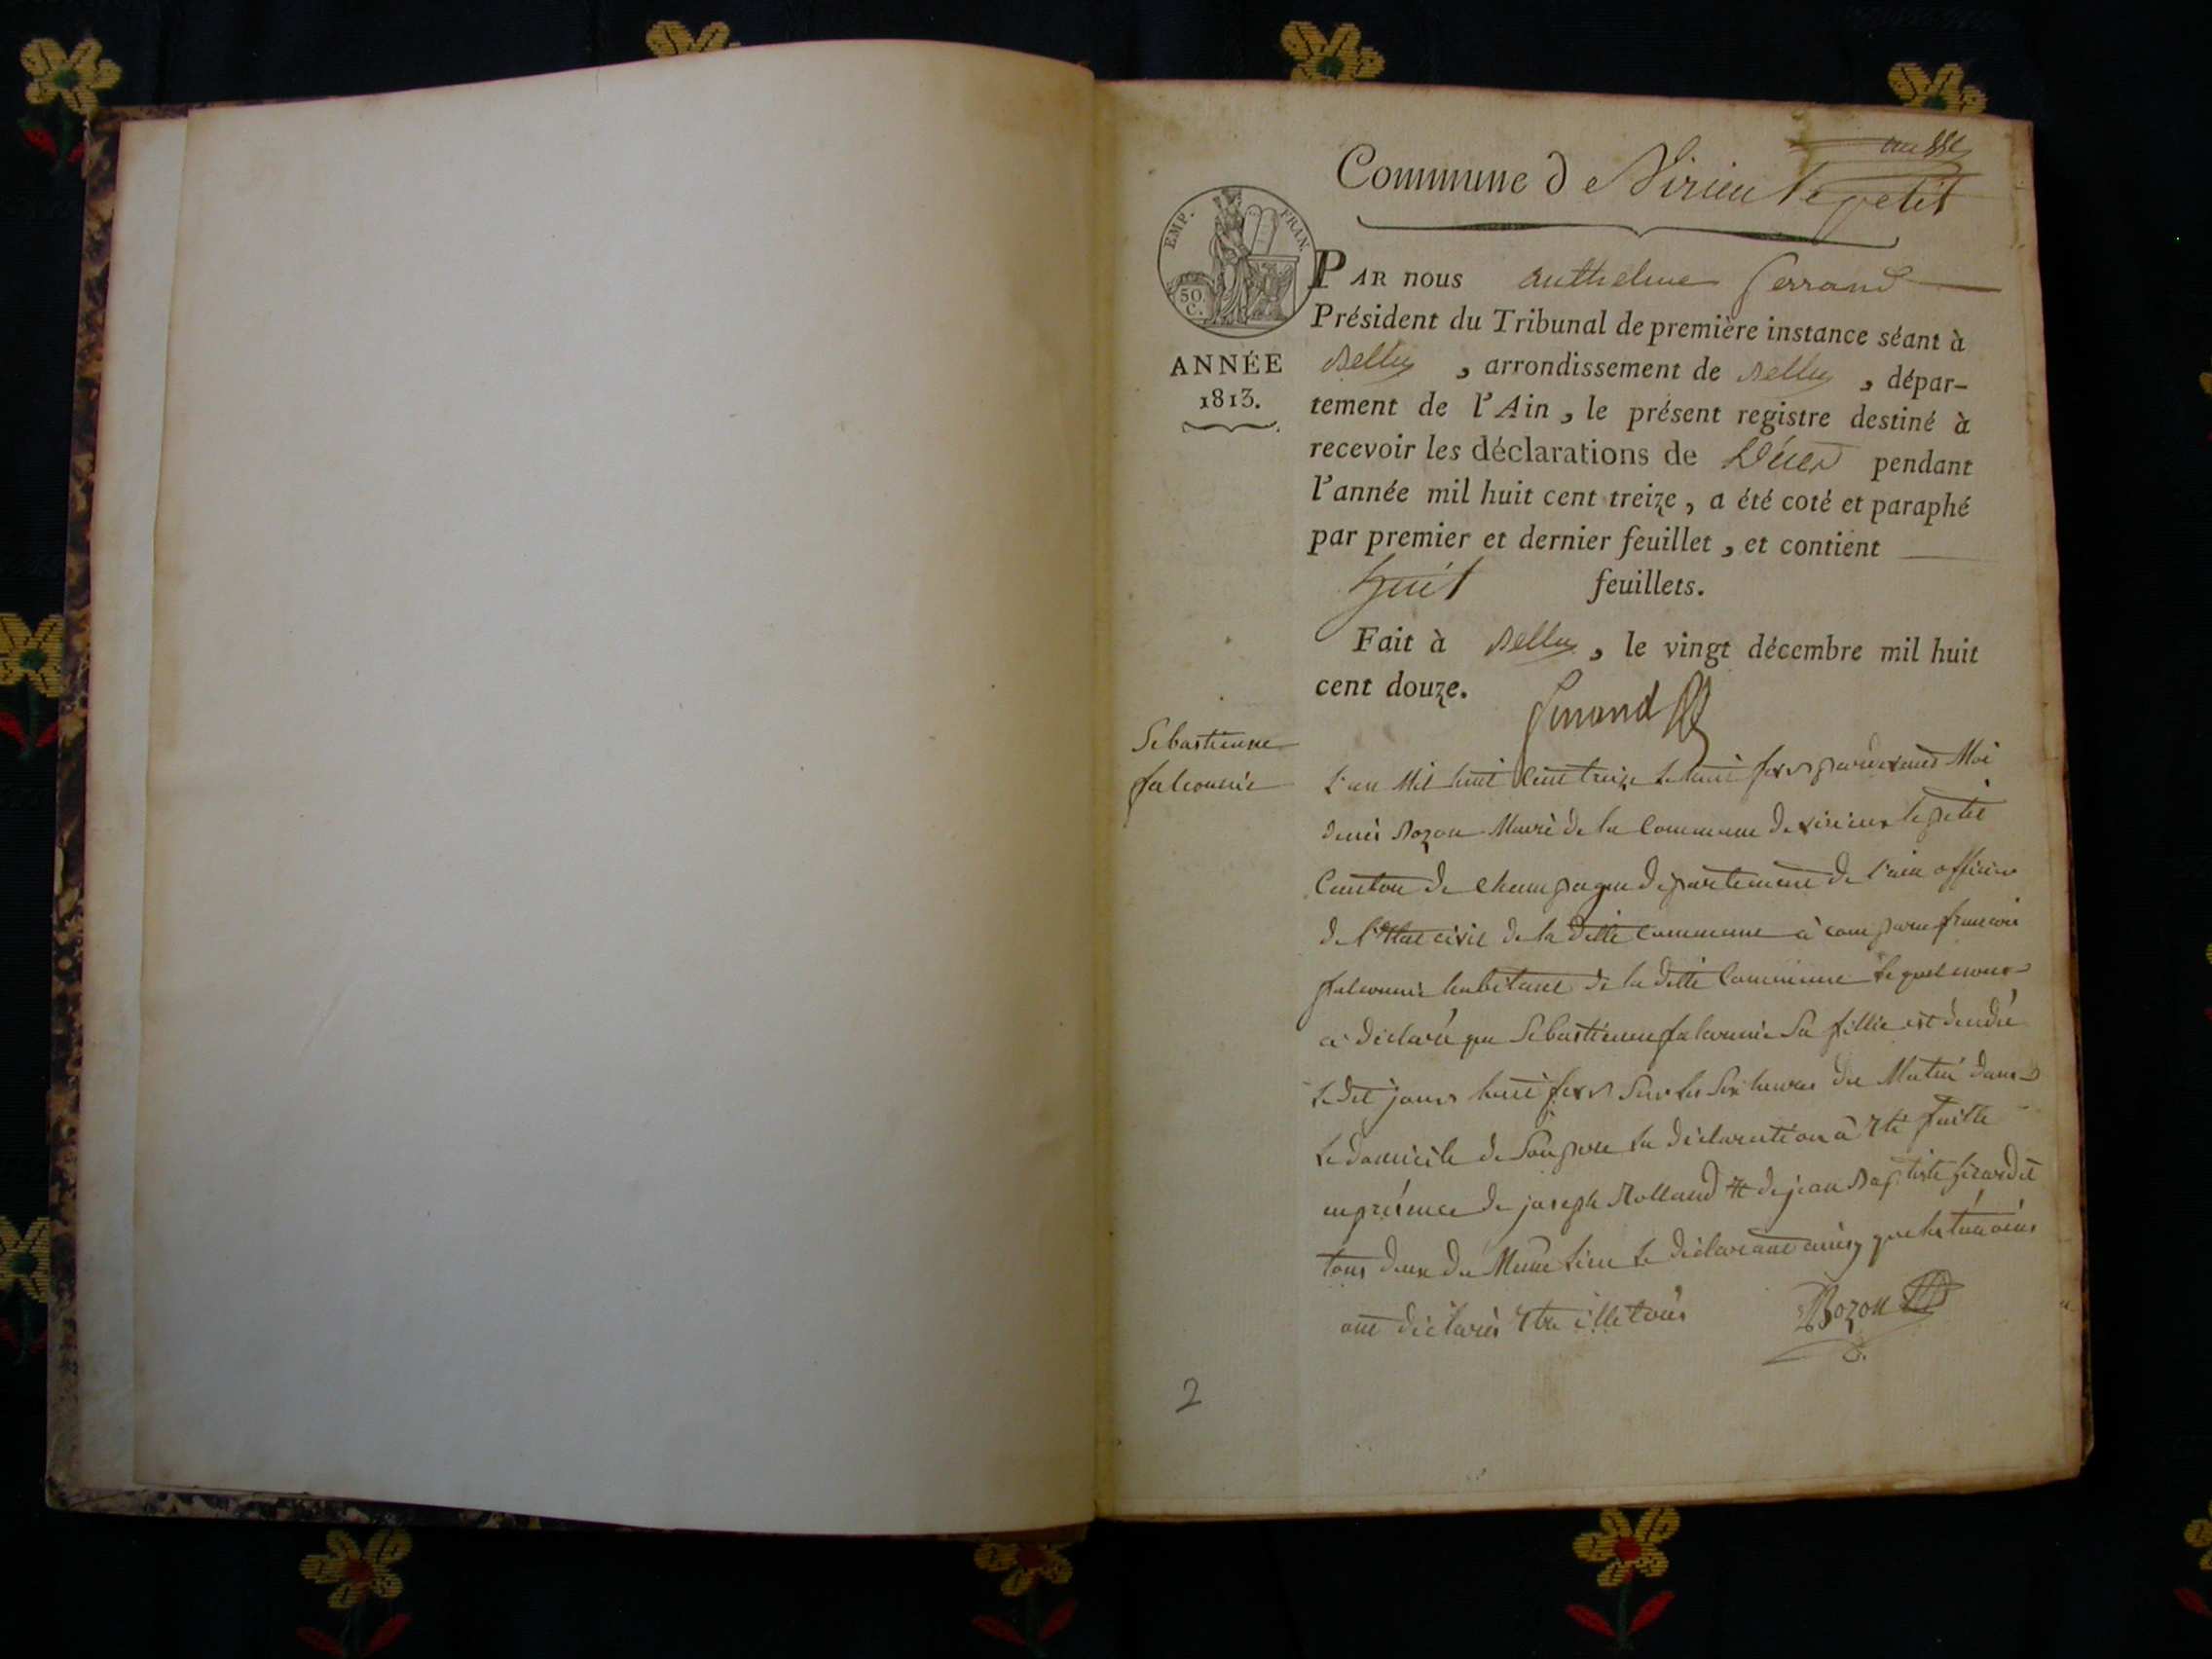 Commune de Virieu le petit
EMP. FRAN.
50 C.
ANNÉE
1813.
PAR nous anthelme ferrand
Président du Tribunal de première instance séant à
Belley, arrondissement de Belley, dépar-
tement de l'Ain, le présent registre destiné à
recevoir les déclarations de Décès pendant
l'année mil huit cent treize, a été coté et paraphé
par premier et dernier feuillet, et contient
huit feuillets.
Fait à Belley, le vingt décembre mil huit
cent douze.
ferrand
Sebastienne
falconnié
L'an Mil huit Cent treize le huit par devant Moi
denis Bozon Maire de la Commune de virieux le petit
Canton de Champagne departement de l'ain officier
de l'Etat civil de la ditte Commune à comparu francois
falconnié habitant de la ditte Commune lequel nous
a déclaré que Sebastienne falconnié Sa fillie est
le dit jours huit Sur les Six heures du Matin dans
le domicile de Son pere la déclaration à été faitte
en présence de joseph Rolland et de jean Baptiste girardet
tous deux du Meme lieu le déclarant ainsy que les témoins
ont déclarés être illetoris
Bozon
2